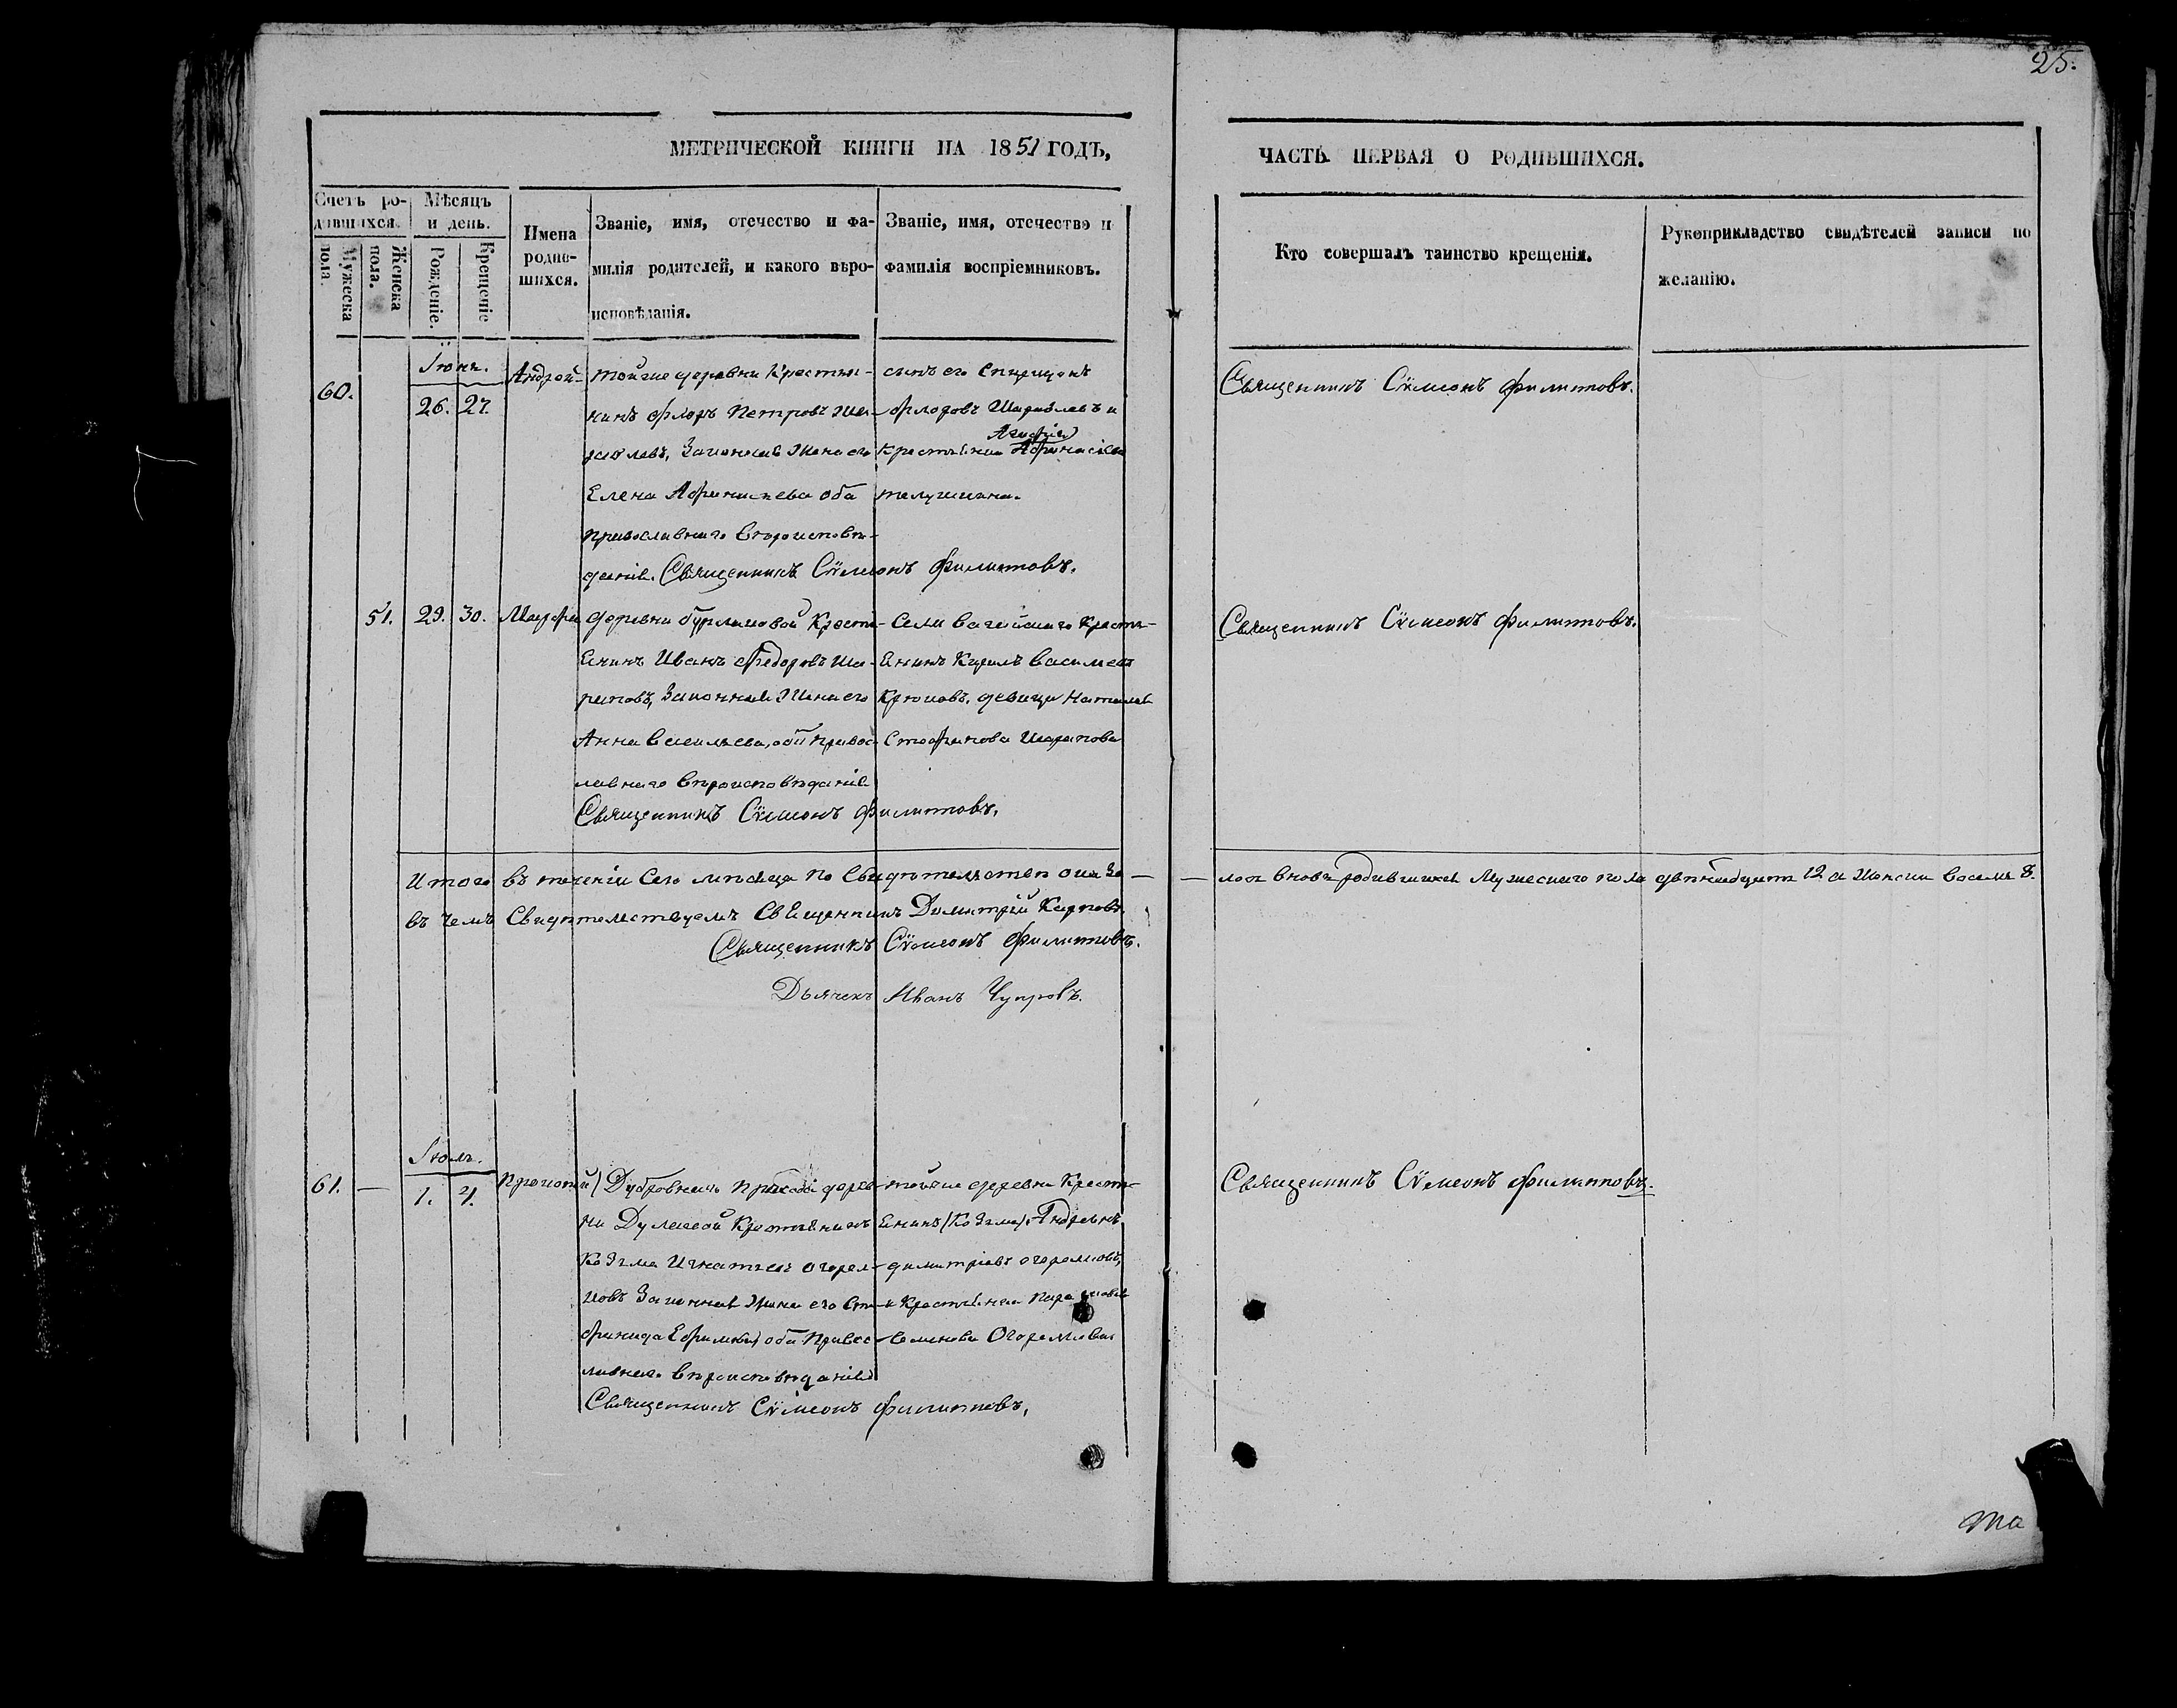 25.
МЕТРИЧЕСКОЙ КНИГИ НА 1851 ГОДЪ,
ЧАСТЬ ПЕРВАЯ О РОДИВШИХСЯ.
Счетъ ро-
дившихся.
Мужеска
пола.
Женска
пола.
Мѣсяцъ
и день.
Рожденіе.
Крещеніе
Имена
родив-
шихся.
Званіе, имя, отечество и фа-
милія родителей, и какого вѣро-
исповѣданія.
Званіе, имя, отечество и
фамилія воспріемниковъ.
Кто совершалъ таинство крещенія.
Рукоприкладство свидѣтелей записи по
желанію.
Іюнь.
60.
26. 27.
Андрей
тойже деревни Крестья-
нинъ Флоръ Петровъ
Законная Жена его
Елена Афанасьева оба
православнаго вѣроисповѣ-
данія. Священникъ Сѷмеонъ Филипповъ.
сынъ его Спиридонъ
Флоровъ и
Крестьянка
Священникъ Сѷмеонъ Филипповъ.
51. 29. 30.
Марфа
деревни Бурлаковой Кресть-
янинъ Иванъ Федоровъ Ша-
раповъ, Законная Жена его
Анна Васильева, оба правос-
лавнаго вѣроисповѣданія
Священникъ Сѷмеонъ Филипповъ.
Села Вагайскаго Кресть-
янинъ Кирилъ Васильевъ
Крюковъ. девица Наталья
Стефанова Шарапова
Священникъ Сѷмеонъ Филипповъ.
Итого въ теченіи Сего мѣсяца по Свидѣтельствѣ ока за-
лось вновь родившихся Мужескаго пола двѣнадцать 12 а Женска восемь 8.
въ чемъ Свидѣтельствуемъ Священникъ Димитрій Карповъ.
Священникъ Сѷмеонъ Филипповъ.
Дьячекъ Иванъ Чупровъ.
Іюль.
61. —
1. 4.
Прокопій
Дубровнаго деревни
Крестьянинъ
Козма Игнатьевъ Огорел-
ковъ Законная Жена его Сте-
фанида Ефимова оба Правос-
лавнаго вѣроисповѣданія
Священникъ Сѷмеонъ Филипповъ.
тойже деревни Кресть-
янинъ (Козма) Андреянъ
Димитріевъ Огорелковъ,
и Крестьянка
Семенова Огорелкова
Священникъ Сѷмеонъ Филипповъ.
та